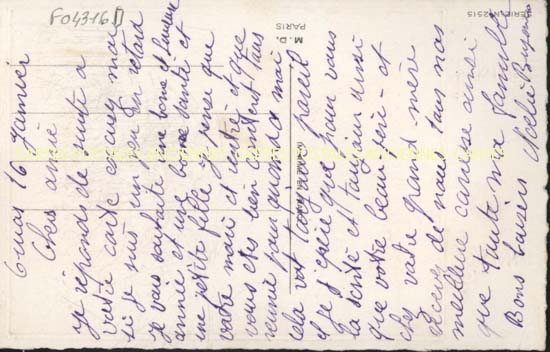 F04316
SERIE N° 2515
M. D.
PARIS
6 16 Janvier
Chers amie
Je réponds de suite a
votre carte car
si je suis un peu en retard
je vous souhaite une bonne et heureuse
année et une bonne santé et
une petite fille je pense que
votre mari et rentré et que
vous etes bien content tous
reunie pour quand a moi
cela vat toujour pareil
et je j'espere que pour vous
la santé et toujour ainsi
que votre beau père et
chez votre grand mère
recevez de nous tous nos
meilleur caresse ainsi
que toute ma famille
Bons baisers